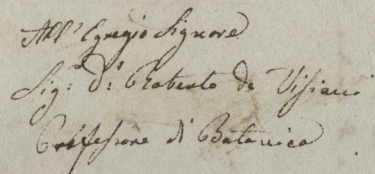 All' Egregio Signore
Sig.r D.r Roberto de Visiani
Professore di Botanica